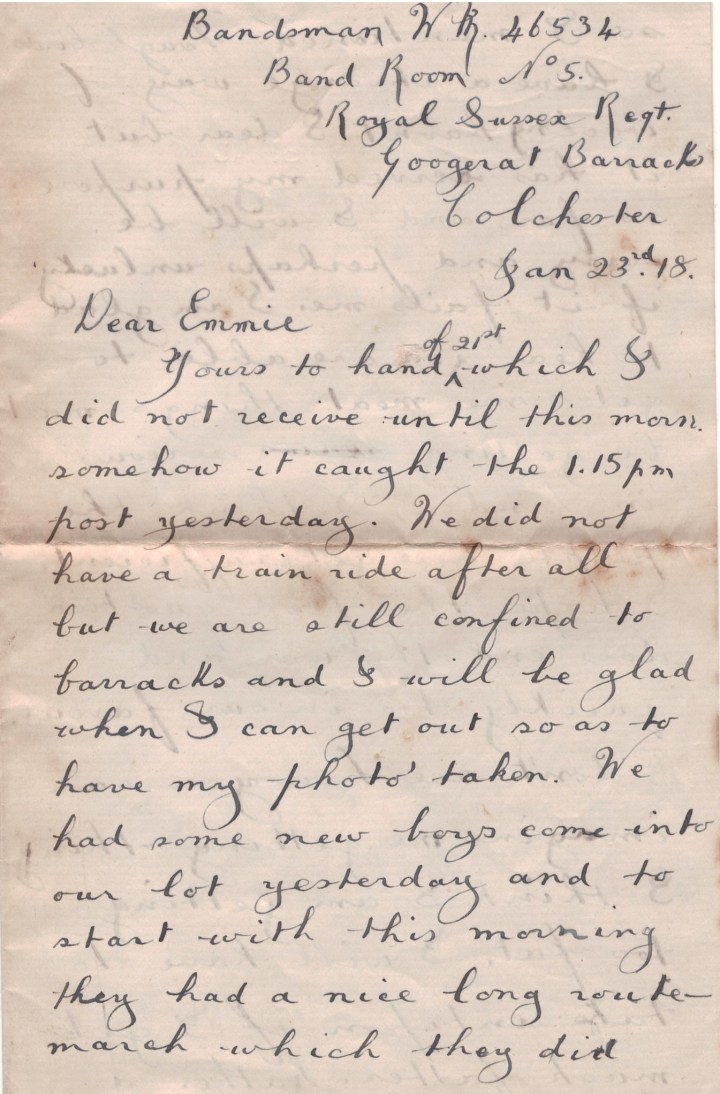 Bandsman W R. 46534
Band Room No 5.
Royal Sussex Regt.
Googerat Barracks
Colchester
Jan 23rd. 18.
Dear Emmie
Yours to hand of 21st which I
did not receive until this morn.
somehow it caught the 1.15pm
post yesterday. We did not
have a train ride after all
but we are still confined to
barracks and I will be glad
when I can get out so as to
have my photo' taken. We
had some new boys come into
our lot yesterday and to
start with this morning
they had a nice long route-
march which they did